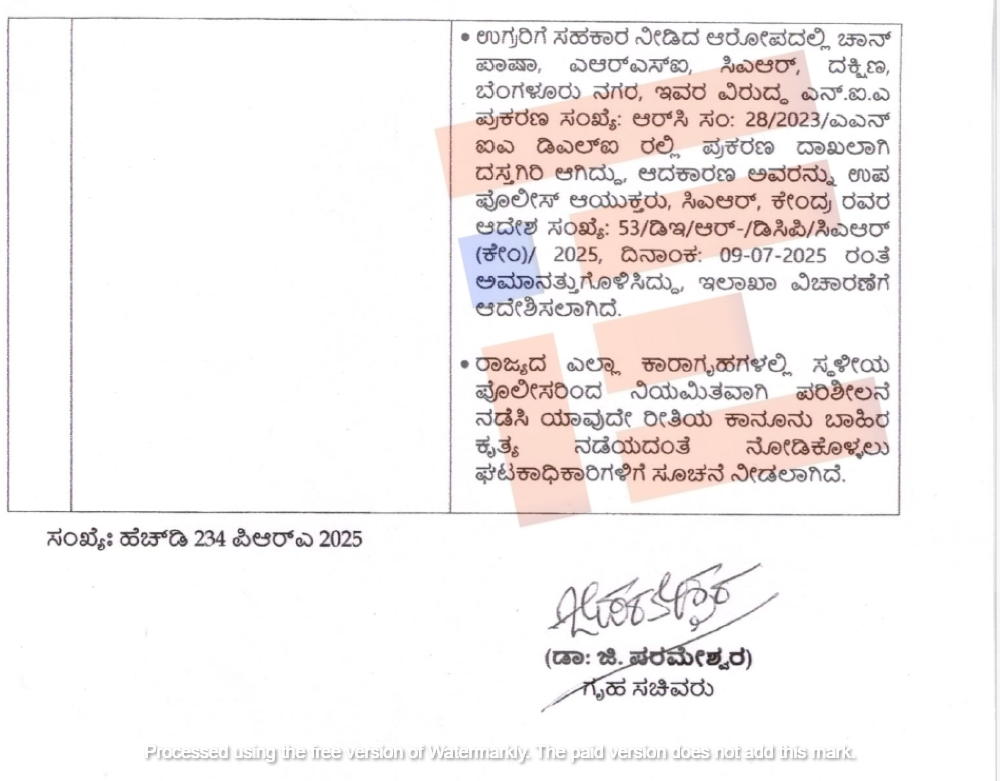 • ಉಗ್ರರಿಗೆ ಸಹಕಾರ ನೀಡಿದ ಆರೋಪದಲ್ಲಿ ಚಾನ್
ಪಾಷಾ, ಎಆರ್‌ಎಸ್‌ಐ, ಸಿಎಆರ್, ದಕ್ಷಿಣ,
ಬೆಂಗಳೂರು ನಗರ, ಇವರ ವಿರುದ್ಧ ಎನ್.ಐ.ಎ
ಪ್ರಕರಣ ಸಂಖ್ಯೆ: ಆರ್‌ಸಿ ಸಂ: 28/2023/ಎಎನ್
ಐಎ ಡಿಎಲ್‌ಐ ರಲ್ಲಿ ಪ್ರಕರಣ ದಾಖಲಾಗಿ
ದಸ್ತಗಿರಿ ಆಗಿದ್ದು, ಆದಕಾರಣ ಅವರನ್ನು ಉಪ
ಪೊಲೀಸ್ ಆಯುಕ್ತರು, ಸಿಎಆರ್, ಕೇಂದ್ರ ರವರ
ಆದೇಶ ಸಂಖ್ಯೆ: 53/ಡಿಇ/ಆರ್-/ಡಿಸಿಪಿ/ಸಿಎಆರ್
(ಕೇಂ)/ 2025, ದಿನಾಂಕ: 09-07-2025 ರಂತೆ
ಅಮಾನತ್ತುಗೊಳಿಸಿದ್ದು, ಇಲಾಖಾ ವಿಚಾರಣೆಗೆ
ಆದೇಶಿಸಲಾಗಿದೆ.
• ರಾಜ್ಯದ ಎಲ್ಲಾ ಕಾರಾಗೃಹಗಳಲ್ಲಿ ಸ್ಥಳೀಯ
ಪೊಲೀಸರಿಂದ ನಿಯಮಿತವಾಗಿ ಪರಿಶೀಲನೆ
ನಡೆಸಿ ಯಾವುದೇ ರೀತಿಯ ಕಾನೂನು ಬಾಹಿರ
ಕೃತ್ಯ ನಡೆಯದಂತೆ ನೋಡಿಕೊಳ್ಳಲು
ಘಟಕಾಧಿಕಾರಿಗಳಿಗೆ ಸೂಚನೆ ನೀಡಲಾಗಿದೆ.
ಸಂಖ್ಯೆ: ಹೆಚ್‌ಡಿ 234 ಪಿಆರ್‌ಎ 2025
(ಡಾ: ಜಿ. ಪರಮೇಶ್ವರ)
ಗೃಹ ಸಚಿವರು
Processed using the free version of Watermarkly. The paid version does not add this mark.